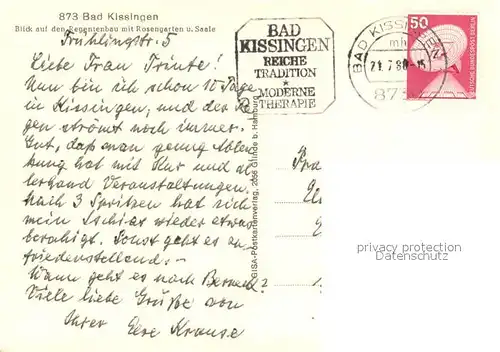 873 Bad Kissingen
Blick auf den Regentenbau mit Rosengarten u. Saale
Frühlingstr. 5
Liebe Frau Trinte!
Nun bin ich schon 10 Tage
in Kissingen, und der Re-
gen strömt noch immer.
Gut, daß man genug Ablen-
kung hat mit Kur und al-
lerhand Veranstaltungen.
Nach 3 Spritzen hat sich
mein Ischias wieder etwas
beruhigt. Sonst geht es zu-
friedenstellend.-
Wann geht es nach
Viele liebe Grüße von
Ihrer Krause
GISA-Postkartenverlag, 2056 Glinde b. Hamburg
BAD
KISSINGEN
REICHE
TRADITION
*
MODERNE
THERAPIE
BAD KISSINGEN
mh
21.7.80-15
873
50
DEUTSCHE BUNDESPOST BERLIN
privacy protection
Datenschutz